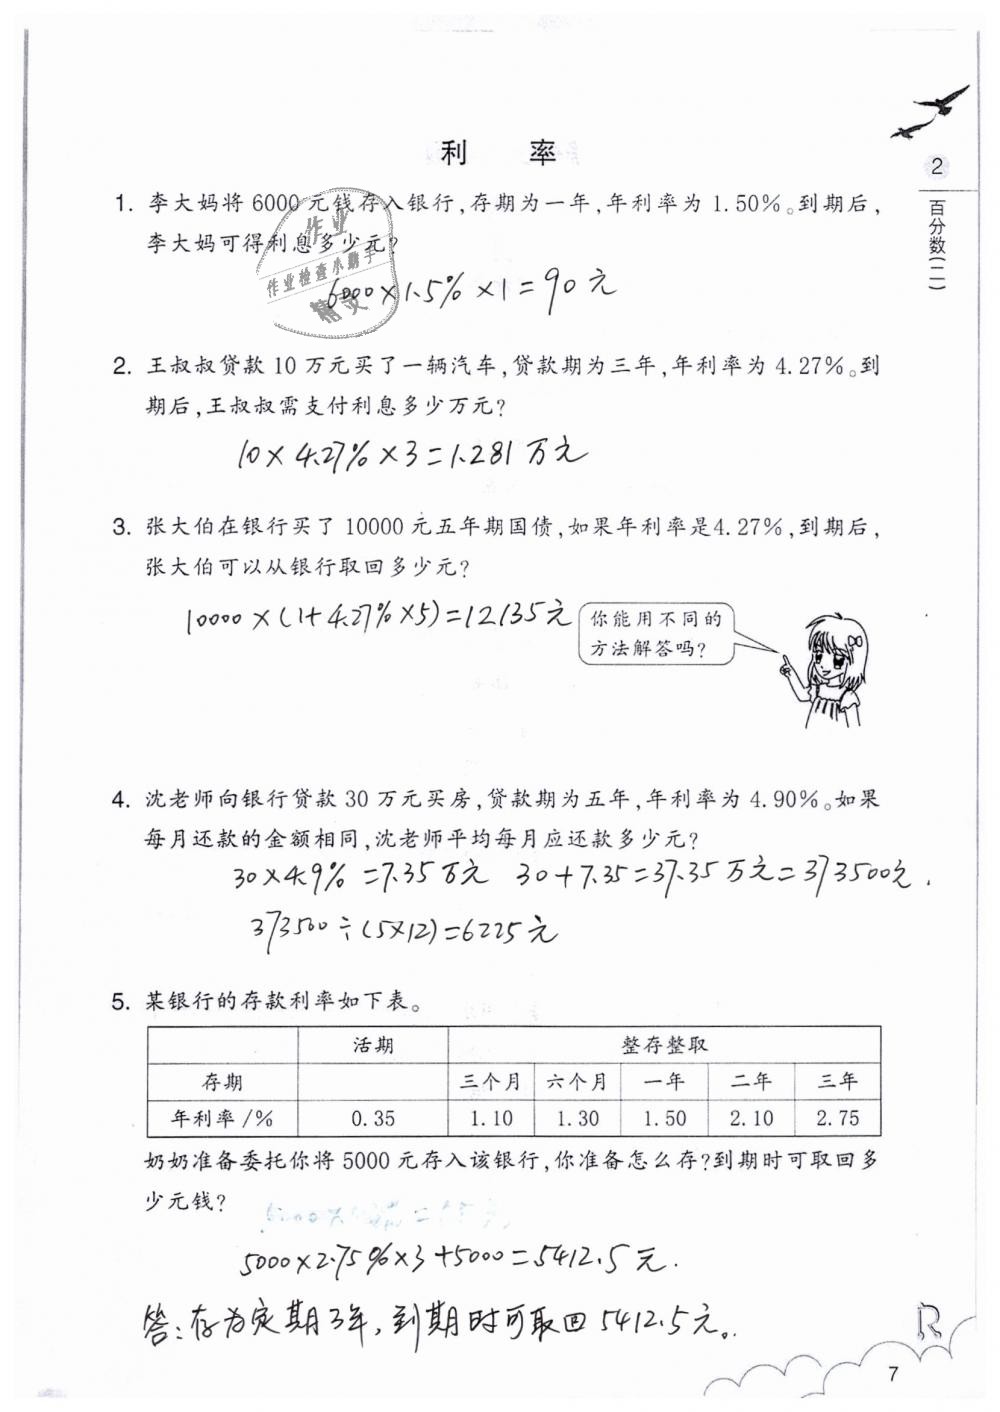 利 率
2
百分数(二)
1. 李大妈将 6000 元钱存入银行,存期为一年,年利率为 1.50%。到期后,
李大妈可得利息多少元?
作业
作业检查小助手
精灵
6000×1.5%×1=90元
2. 王叔叔贷款 10 万元买了一辆汽车,贷款期为三年,年利率为 4.27%。到
期后,王叔叔需支付利息多少万元?
10×4.27%×3=1.281万元
3. 张大伯在银行买了 10000 元五年期国债,如果年利率是4.27%,到期后,
张大伯可以从银行取回多少元?
10000×(1+4.27%×5)=12135元
你能用不同的
方法解答吗?
4. 沈老师向银行贷款 30 万元买房,贷款期为五年,年利率为 4.90%。如果
每月还款的金额相同,沈老师平均每月应还款多少元?
30×4.9% =7.35万元 30+7.35=37.35万元=373500元.
373500÷(5×12)=6225元
5. 某银行的存款利率如下表。
活期 整存整取
存期 三个月 六个月 一年 二年 三年
年利率/% 0.35 1.10 1.30 1.50 2.10 2.75
奶奶准备委托你将 5000 元存入该银行,你准备怎么存?到期时可取回多
少元钱?
5000×2.75%×3+5000=5412.5元.
答:存为定期3年,到期时可取回5412.5元。
R
7